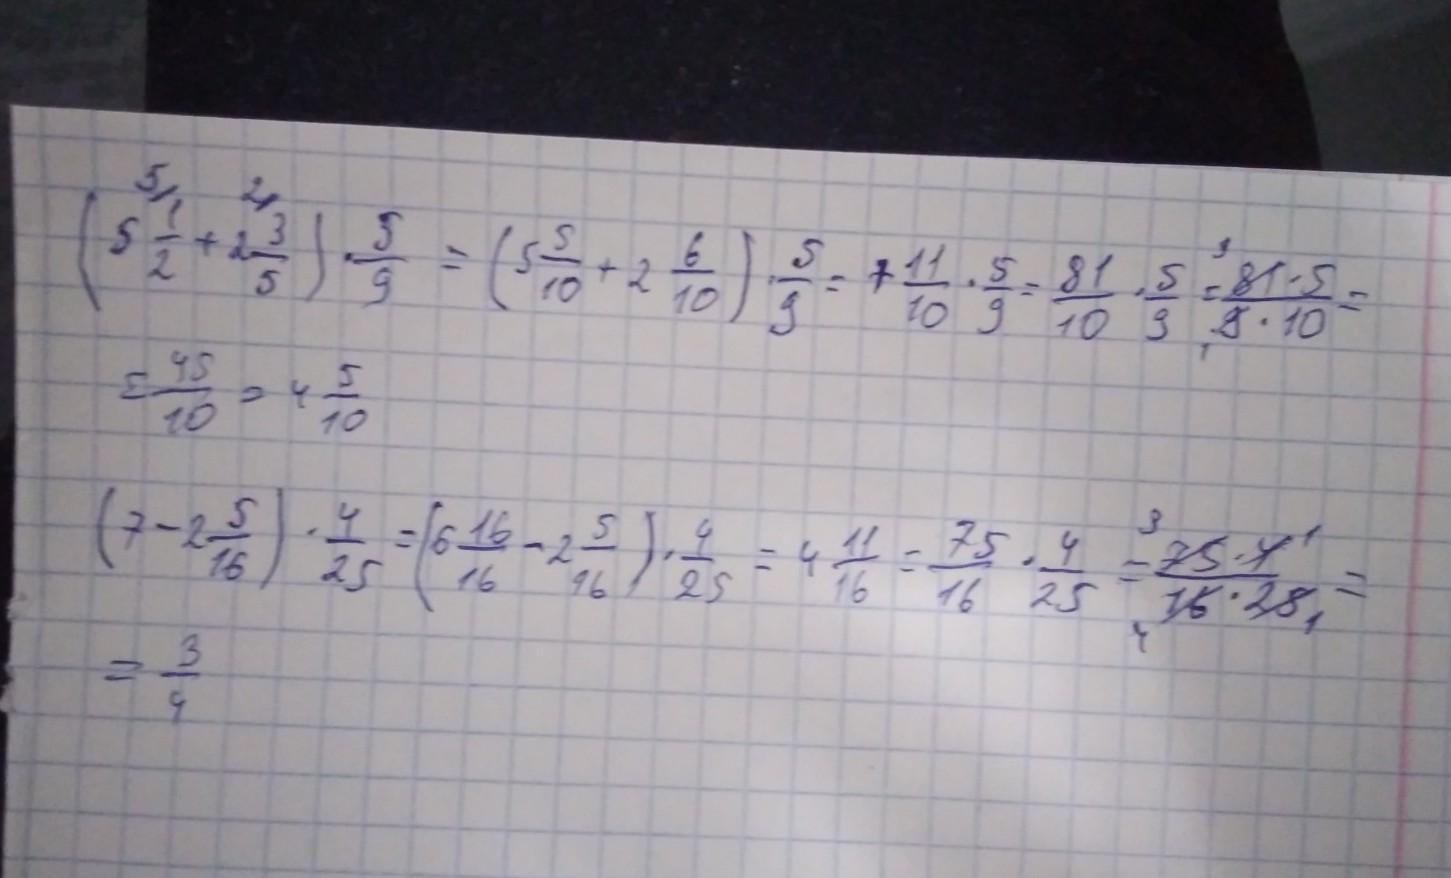 (5 1/2 + 2 3/5) · 5/9 = (5 5/10 + 2 6/10) · 5/9 = 7 11/10 · 5/9 = 81/10 · 5/9 = 81·5/9·10 =
= 45/10 = 4 5/10
(7 - 2 5/16) · 4/25 = (6 16/16 - 2 5/16) · 4/25 = 4 11/16 = 75/16 · 4/25 = 75·4/16·25 =
= 3/4